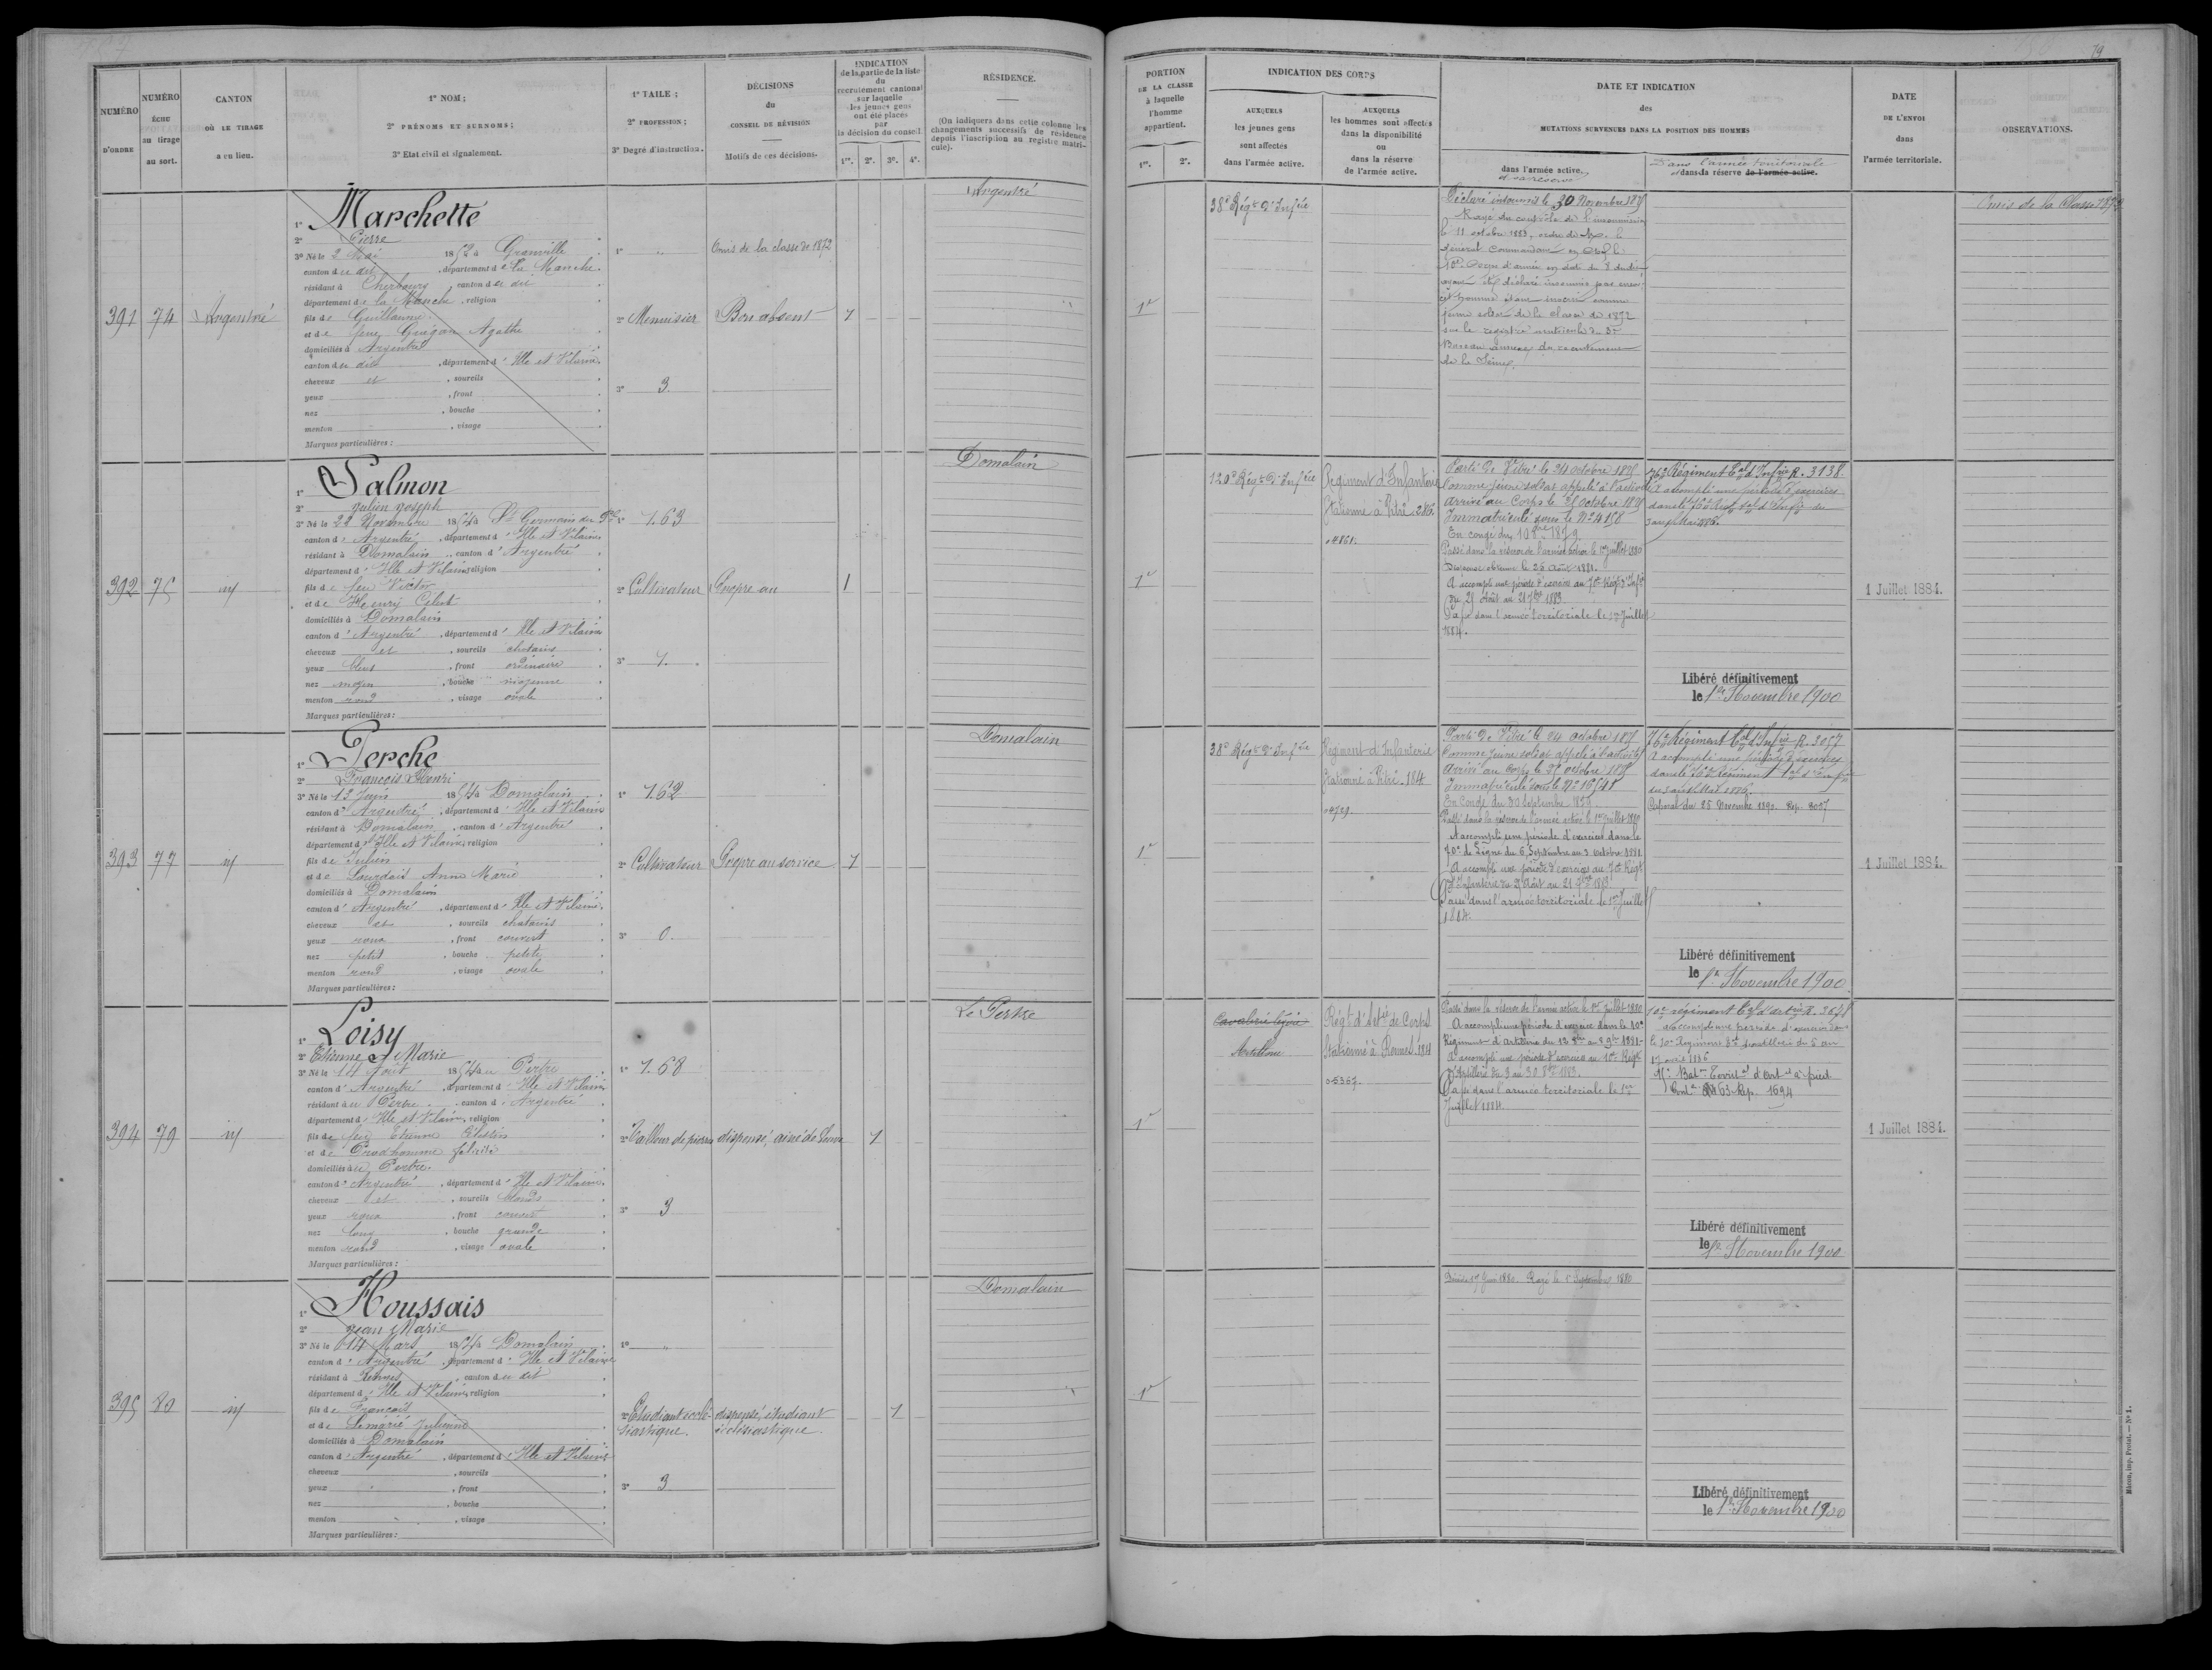 79
NUMÉRO
D'ORDRE
NUMÉRO
ÉCHU
au tirage
au sort.
CANTON
OÙ LE TIRAGE
a eu lieu.
1° NOM ;
2° PRÉNOMS ET SURNOMS ;
3° Etat civil et signalement.
1° TAILE ;
2° PROFESSION ;
3° Degré d'instruction.
DÉCISIONS
du
CONSEIL DE RÉVISION
Motifs de ces décisions.
INDICATION
de la partie de la liste
du
recrutement cantonal
sur laquelle
les jeunes gens
ont été placés
par
la décision du conseil.
1re. 2e. 3e. 4e.
RÉSIDENCE.
(On indiquera dans cette colonne les
changements successifs de résidence
depuis l'inscription au registre matri-
cule).
PORTION
DE LA CLASSE
à laquelle
l'homme
appartient.
1re. 2e.
INDICATION DES CORPS
AUXQUELS
les jeunes gens
sont affectés
dans l'armée active.
AUXQUELS
les hommes sont affectés
dans la disponibilité
ou
dans la réserve
de l'armée active.
DATE ET INDICATION
des
MUTATIONS SURVENUES DANS LA POSITION DES HOMMES
dans l'armée active.
et sa réserve
Dans l'armée territoriale
et dans la réserve de l'armée active.
DATE
DE L'ENVOI
dans
l'armée territoriale.
OBSERVATIONS.
391
74
Argentré
1° Marchette
2° Pierre
3° Né le 2 Mai 1852 à Granville
canton du dit, département de la Manche.
résidant à Cherbourg canton du dit
département de la Manche, religion
fils de Guillaume
et de feue Guégan Agathe
domiciliés à Argentré
canton du dit, département d'Ille et Vilaine.
cheveux et, sourcils
yeux, front
nez, bouche
menton, visage
Marques particulières :
1° "
2° Menuisier
3° 3
Omis de la classe de 1872
Bon absent
1
Argentré
1re
38e Régt d'Infrie
Déclaré insoumis le 30 Novembre 1875
Rayé du contrôle de l'insoumission
le 11 octobre 1883, ordre de Mr le
général Commandant en chef le
10e Corps d'armée en date du 8 dudit
cet homme étant inscrit comme
jeune soldat de la classe de 1872
sur le registre matricule du 3e
Bureau du recrutement
de la Seine.
Omis de la Classe 1872
392
75
id
1° Salmon
2° Julien Joseph
3° Né le 22 Novembre 1854 à St Germain du Pel
canton d'Argentré, département d'Ille et Vilaine
résidant à Domalain, canton d'Argentré
département d'Ille et Vilaine religion
fils de feu Victor
et de Henry Célest
domiciliés à Domalain
canton d'Argentré, département d'Ille et Vilaine
cheveux et, sourcils chatains
yeux bleus, front ordinaire
nez moyen, bouche moyenne
menton rond, visage ovale
Marques particulières :
1° 1.63
2° Cultivateur
3° 1.
Propre au
1
Domalain
1re
120e Régt d'Infrie
Régiment d'Infanterie
Stationné à Vitré 286
04861.
Parti de Vitré le 24 octobre 1875
Comme jeune soldat appelé à l'activité
Arrivé au Corps le 25 octobre 1875
Immatriculé sous le No 4158
En congé du 10 8bre 1879
Passé dans la réserve de l'armée active le 1er Juillet 1880
Dispense obtenue le 26 Août 1881.
A accompli une période d'exercices au 70e Régt d'Infie
du 25 Août au 21 7bre 1883
Passé dans l'armée territoriale le 1er Juillet
1884.
76e Régiment Tal d'Infrie R. 3138.
A accompli une période d'exercices
dans le 76e Régt Tal d'Infie du
3 au 15 Mai 1886.
Libéré définitivement
le 1er Novembre 1900
1 Juillet 1884.
393
77
id
1° Perche
2° François Henri
3° Né le 13 Juin 1854 à Domalain
canton d'Argentré, département d'Ille et Vilaine
résidant à Domalain, canton d'Argentré
département d'Ille et Vilaine, religion
fils de Julien
et de Lourdais Anne Marie
domiciliés à Domalain
canton d'Argentré, département d'Ille et Vilaine.
cheveux et, sourcils chatains
yeux roux, front couvert
nez petit, bouche petite
menton rond, visage ovale
Marques particulières :
1° 1.62
2° Cultivateur
3° 0.
Propre au service
1
Domalain
1re
38e Régt d'Infrie
Régiment d'Infanterie
Stationné à Vitré. 184
04729.
Parti de Vitré le 24 octobre 1875
Comme jeune soldat appelé à l'activité
Arrivé au Corps le 25 octobre 1875
Immatriculé sous le No 16541
En Congé du 30 Septembre 1879.
Passé dans la réserve de l'armée active le 1er Juillet 1880
A accompli une période d'exercices dans le
70e de Ligne du 6 Septembre au 3 Octobre 1881
A accompli une période d'exercices au 70e Régt
d'Infanterie du 25 Août au 21 7bre 1883
Passé dans l'armée territoriale le 1er Juillet
1884.
76e Régiment Tal d'Infrie R. 3057
A accompli une période d'exercices
dans le 76e Régiment Tal d'Infrie
du 3 au 15 Mai 1886.
25 Novembre 1890. Rép. 3057
Libéré définitivement
le 1er Novembre 1900.
1 Juillet 1884.
394
79
id
1° Loisy
2° Etienne Marie
3° Né le 14 Août 1854 au Pertre
canton d'Argentré, département d'Ille et Vilaine
résidant au Pertre canton d'Argentré
département d'Ille et Vilaine, religion
fils de feu Etienne Célestin
et de Prudhomme félicité
domiciliés au Pertre.
canton d'Argentré, département d'Ille et Vilaine.
cheveux et, sourcils blonds
yeux roux, front couvert
nez long, bouche grande
menton rond, visage ovale
Marques particulières :
1° 1.68
2° Tailleur de pierres
3° 3
dispensé, ainé de veuve
1
Le Pertre
1re
Cavalerie légère
Artillerie
Régt d'Artie de Corps
Stationné à Rennes. 184
05367.
Passé dans la réserve de l'armée active le 1er Juillet 1880
A accompli une période d'exercice dans le 10e
Régiment d'Artillerie du 12 8bre au 8 9bre 1881.
A accompli une période d'exercice au 10e Régt
d'Artillerie du 3 au 30 8bre 1883.
Passé dans l'armée territoriale le 1er
Juillet 1884.
10e régiment Tal d'artie R. 3678
A accompli une période d'exercice dans
le 10e Régiment Tal d'artillerie du 5 au
17 avril 1886
15e Baton Territal d'Art à pied
63 Rép. 1694
Libéré définitivement
le 1er Novembre 1900
1 Juillet 1884.
395
80
id
1° Houssais
2° Jean Marie
3° Né le 14 Mars 1854 à Domalain
canton d'Argentré, département d'Ille et Vilaine
résidant à Rennes, canton du dit
département d'Ille et Vilaine, religion
fils de François
et de Lemarié Julienne
domiciliés à Domalain
canton d'Argentré, département d'Ille et Vilaine
cheveux, sourcils
yeux, front
nez, bouche
menton, visage
Marques particulières :
1° "
2° Etudiant ecclé-
siastique.
3° 3
dispensé, étudiant
ecclésiastique.
1
Domalain
1re
Décédé 17 Juin 1880. Rayé le 1er Septembre 1880
Libéré définitivement
le 1er Novembre 1900
Mâcon, imp. Protat. — No 1.